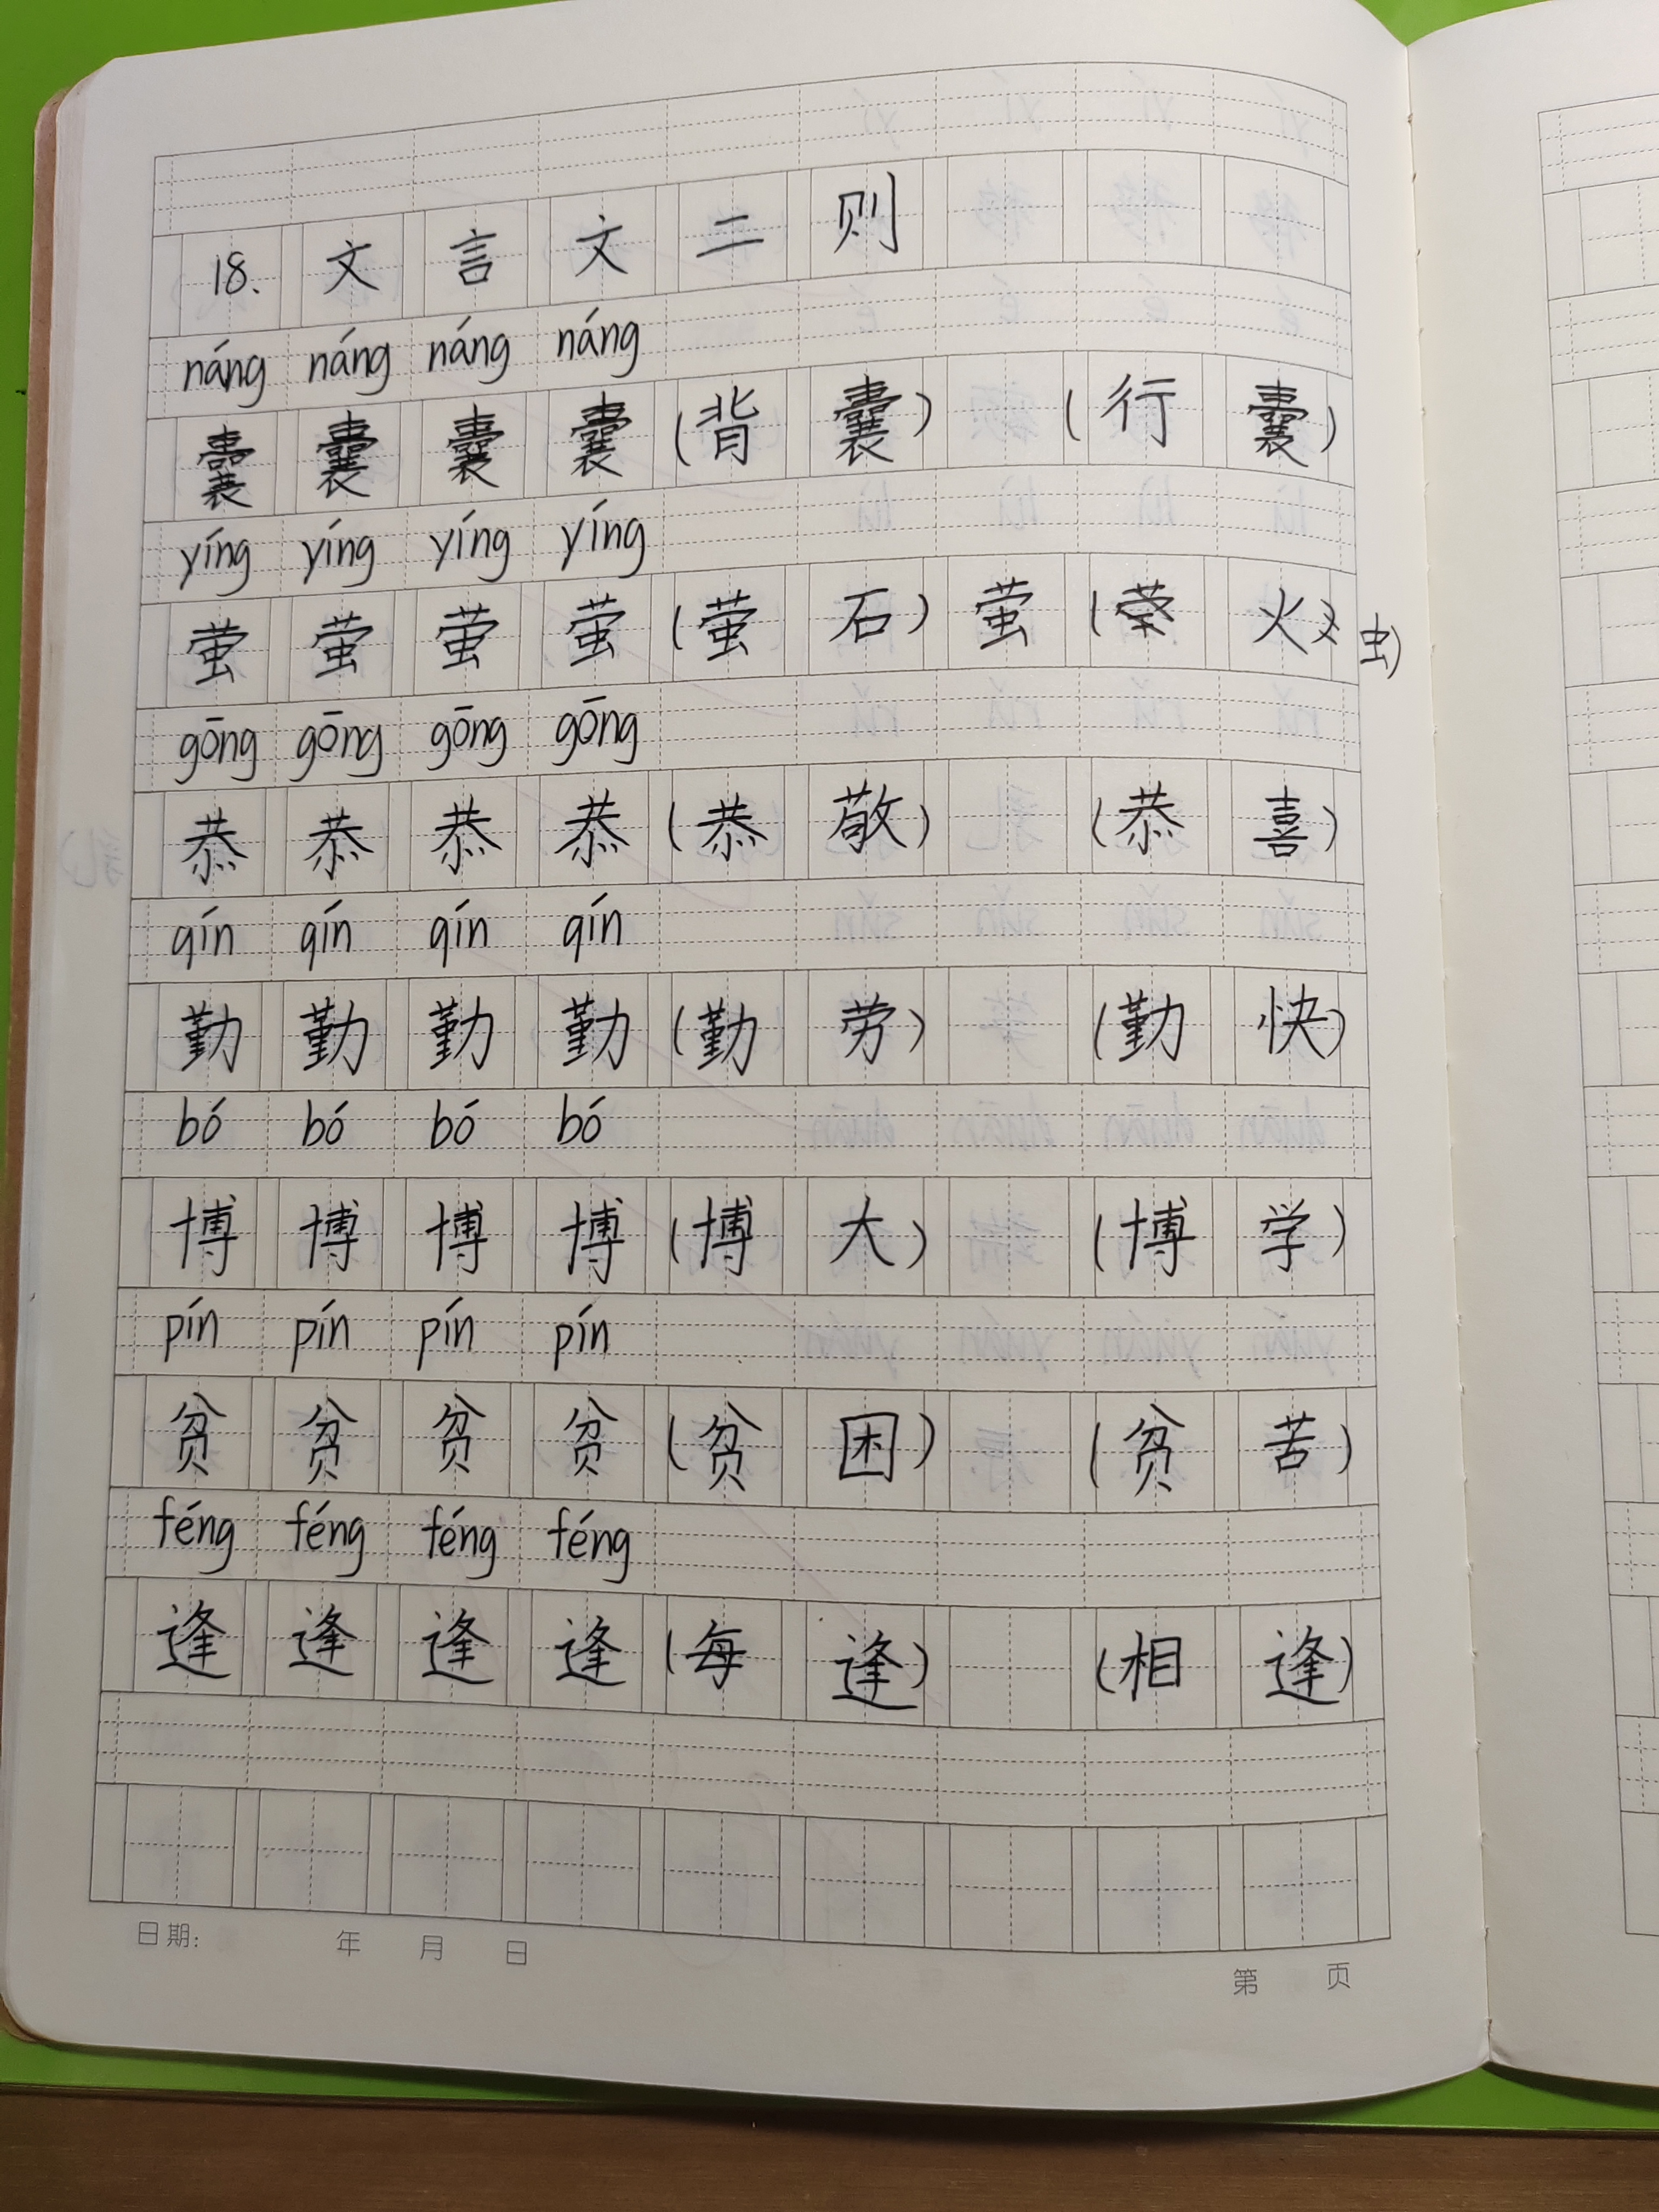 18.文言文二则
náng náng náng náng
囊囊囊囊(背囊) (行囊)
yíng yíng yíng yíng
萤萤萤萤(萤石)萤(荧火虫)
gōng gōng gōng gōng
恭恭恭恭(恭敬) (恭喜)
qín qín qín qín
勤勤勤勤(勤劳) (勤快)
bó bó bó bó
博博博博(博大) (博学)
pín pín pín pín
贫贫贫贫(贫困) (贫苦)
féng féng féng féng
逢逢逢逢(每逢) (相逢)
日期: 年 月 日
第 页